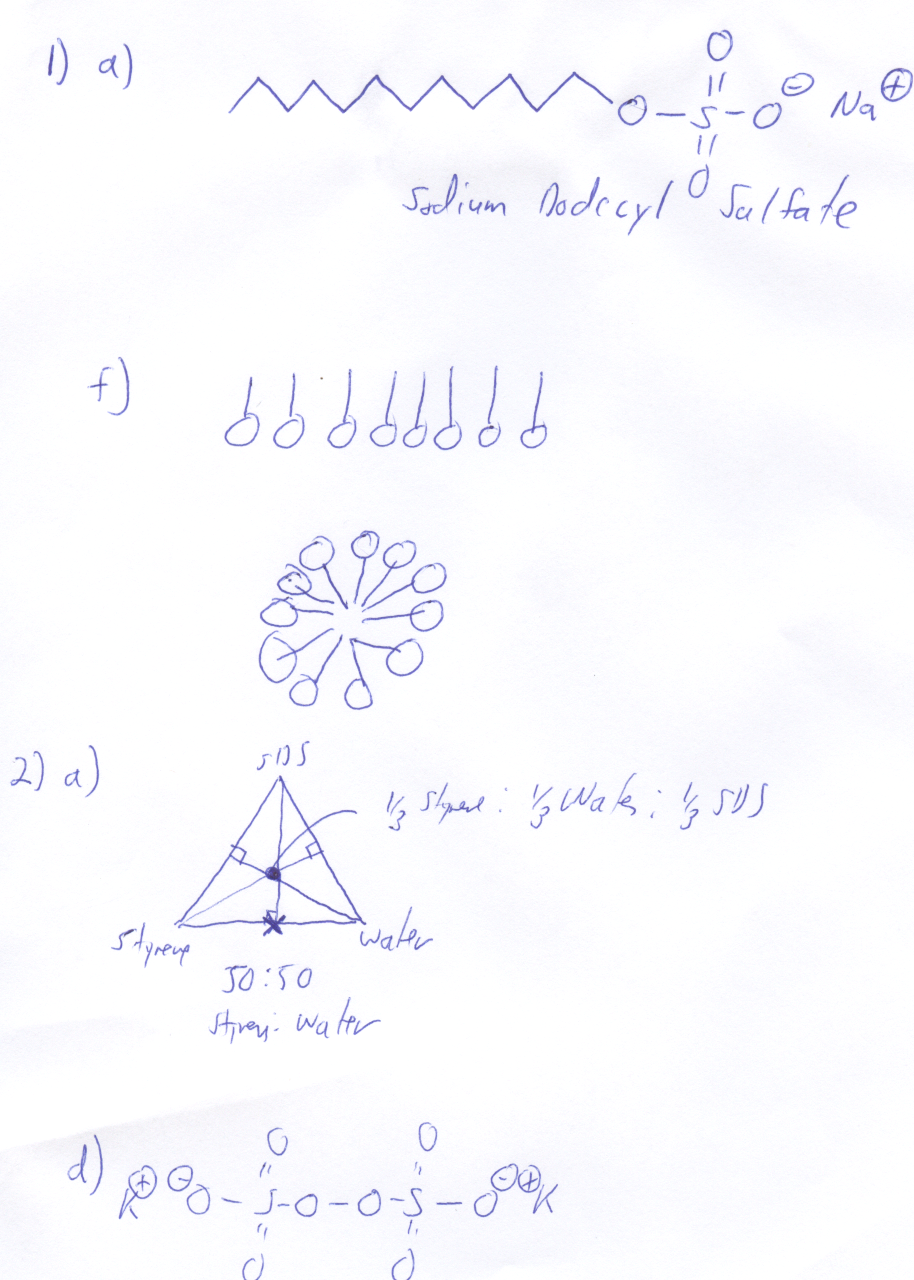 1) a)
O
||
O – S – O ⊖ Na ⊕
||
O
Sodium Dodecyl Sulfate
f)
2) a)
SDS
1/3 Styrene : 1/3 Water : 1/3 SDS
Styrene
Water
50:50
Styrene: Water
d)
O O
|| ||
K ⊕ ⊖ O – S – O – O – S – O ⊖ ⊕ K
|| ||
O O